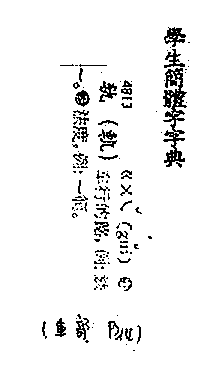 學生簡體字字典
4813 ㄍㄨㄟˇ (guǐ) ❶
軌 (軌) 車行的路,例:鐵
~。❷法度,例:~範。
(車部